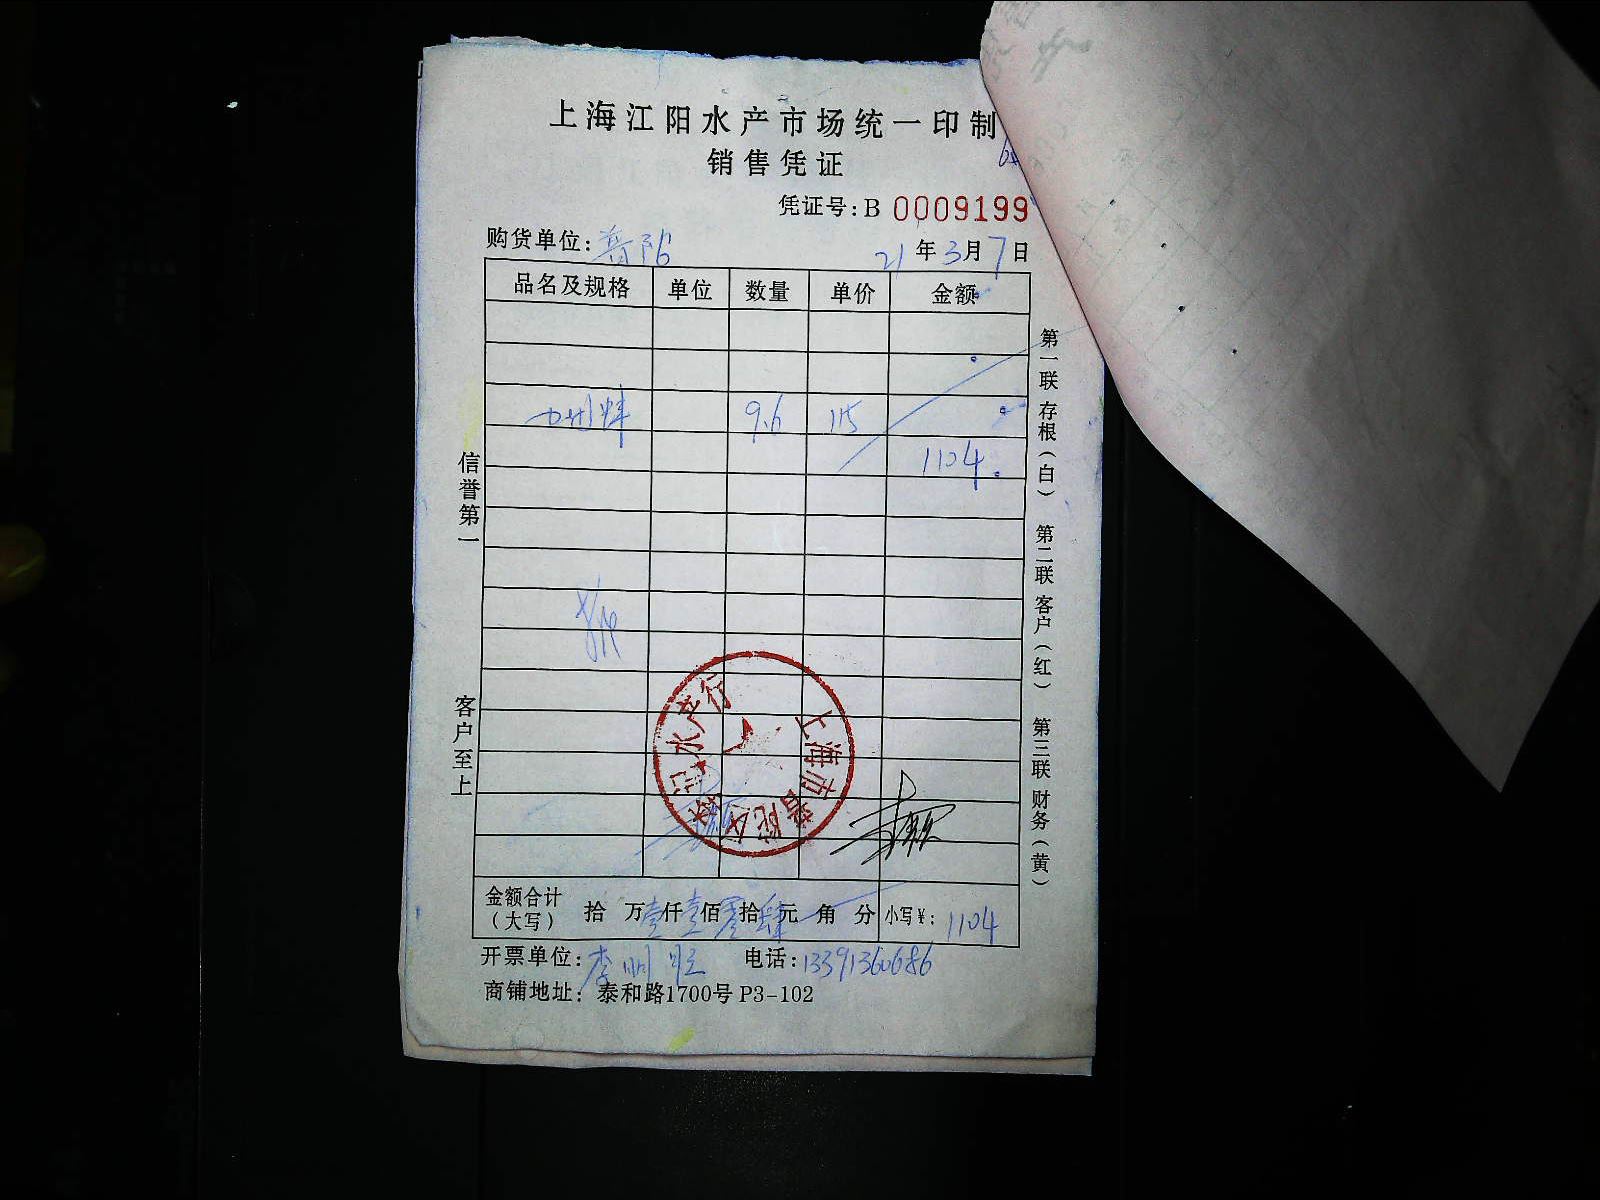 上海江阳水产市场统一印制
销售凭证
凭证号:B 0009199
购货单位:普陀 21年3月7日
品名及规格 单位 数量 单价 金额
9.6 115
1104.
信誉第一
客户至上
第一联 存根(白) 第二联 客户(红) 第三联 财务(黄)
上海市普陀区 水产行
金额合计(大写) 拾 万壹仟壹佰零拾肆元 角 分 小写¥: 1104
开票单位:李明 电话:13391360686
商铺地址:泰和路1700号 P3-102